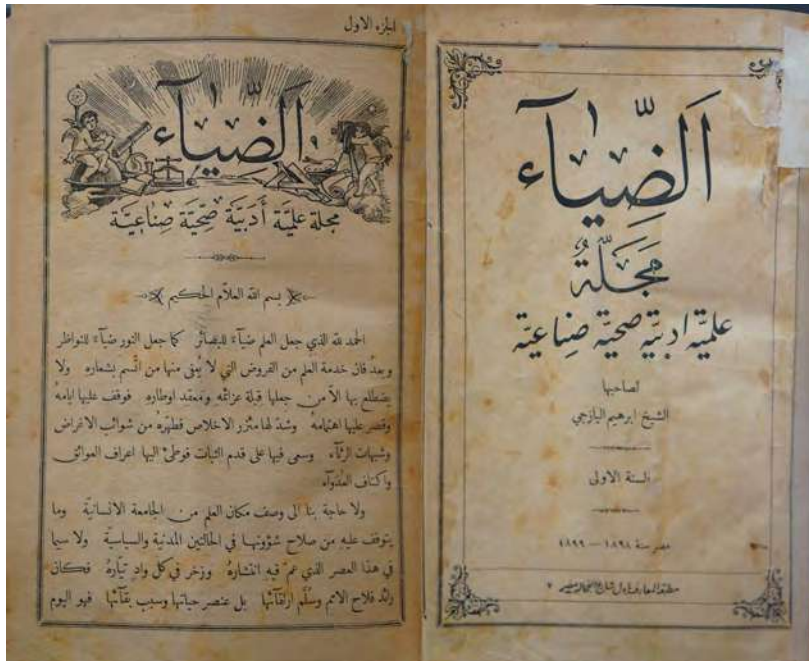 اَلضِّيَآء
مَجَلَّةٌ
علميَّة ادبيَّة صحيَّة صِناعيَّة
لصاحبها
الشيخ ابرهيم اليازجي
السنة الاولى
مصر سنة ١٨٩٨ — ١٨٩٩
مطبعة المعارف باول شارع الفجالة بمصر
الجزء الاول
اَلضِّيَآء
مجلة علميَّة أَدَبيَّة صِحّيَّة صِناعيَّة
بسم الله العلاّم الحكيم
الحمد لله الذي جعل العلم ضيآءً للبصائر كما جعل النور ضيآءً للنواظر
وبعدُ فان خدمة العلم من الفروض التي لا يُعفى منها من اتَّسم بشعاره ولا
يضطلع بها الاَّ من جعلها قِبلة عزائمه ومَعقِد اوطاره فوقف عليها ايامهُ
وقصر عليها اهتمامهُ وشدَّ لها مئزر الاخلاص فطهَّرهُ من شوائب الاغراض
وشبهات الرئآء وسعى فيها على قدم الثبات فوطئ اليها اعراف العوائق
واكناف العُدَوآء
ولا حاجة بنا الى وصف مكان العلم من الجامعة الانسانيَّة وما
يتوقف عليهِ من صلاح شؤونها في الحالتين المدنية والسياسيَّة ولا سيما
في هذا العصر الذي عمَّ فيهِ انتشارهُ وزخر في كل وادٍ تيَّارهُ فكان
رائد فلاح الامم وسُلَّم ارتقآئها بل عنصر حياتها وسبب بقآئها فهو اليوم